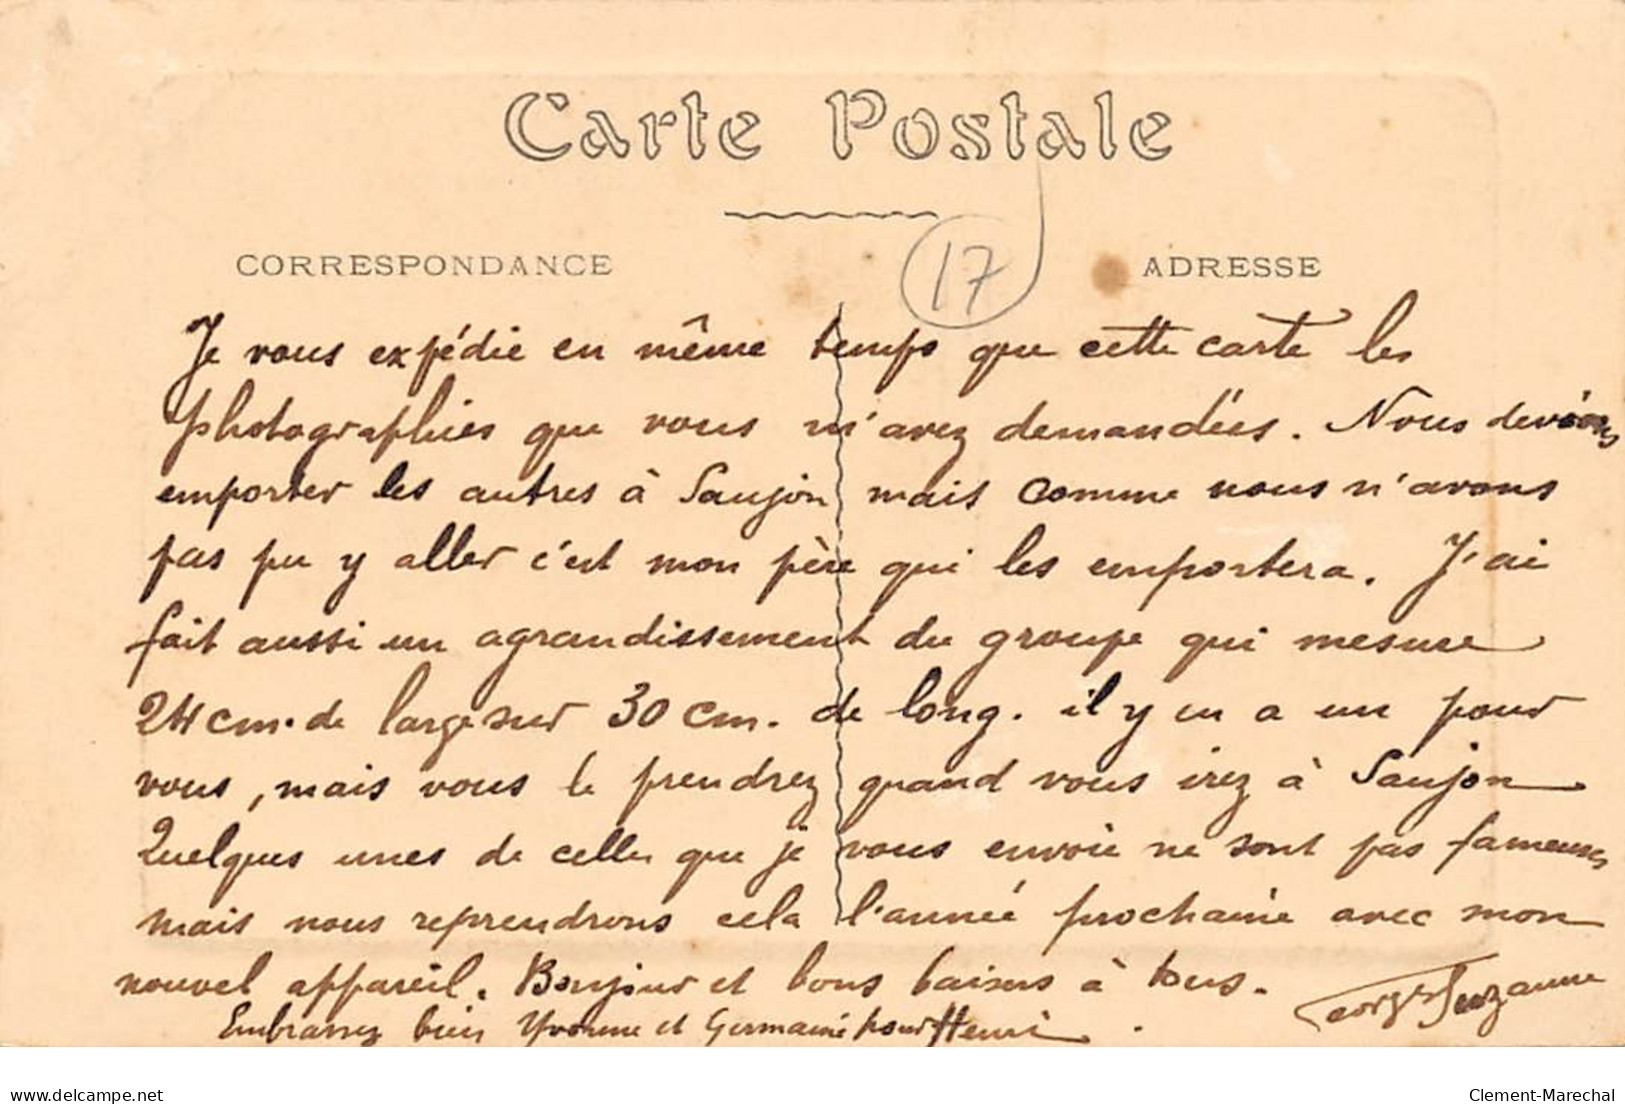 Carte Postale
17
CORRESPONDANCE
ADRESSE
Je vous expédie en même temps que cette carte les
photographies que vous m'avez demandées. Nous devions
emporter les autres à Saujon mais comme nous n'avons
pas pu y aller c'est mon père qui les emportera. J'ai
fait aussi un agrandissement du groupe qui mesure
24 cm. de large sur 30 cm. de long. il y en a un pour
vous, mais vous le prendrez quand vous irez à Saujon
Quelques unes de celles que je vous envoie ne sont pas fameuses
mais nous reprendrons cela l'année prochaine avec mon
nouvel appareil. Bonjour et bons baisers à tous.
Georges Suzanne
Embrassez bien Yvonne et Germaine pour Henri.
delcampe.net
Clement-Marechal